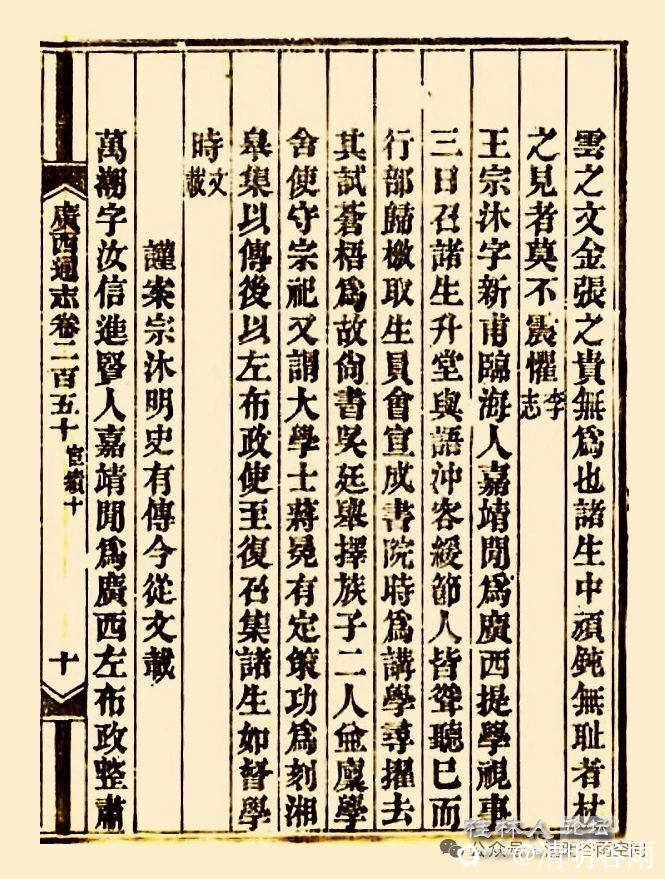 雲之文金張之貴無爲也諸生中頑鈍無耻者杖
之見者莫不震懼李志
王宗沐字新甫臨海人嘉靖閒爲廣西提學視事
三日召諸生升堂與語沖容緩節人皆聳聽已而
行部歸檄取生員會宣成書院時爲講學尋擢去
其試蒼梧爲故尚書吳廷舉擇族子二人僉廩學
舍使守宗祀又謂大學士蔣冕有定策功爲刻湘
臯集以傳後以左布政使至復召集諸生如督學
時文載
謹案宗沐明史有傳今從文載
萬潮字汝信進賢人嘉靖閒爲廣西左布政整肅
廣西通志卷二百五十 宦績十 十
桂林人论坛
公众号
@清明谷雨